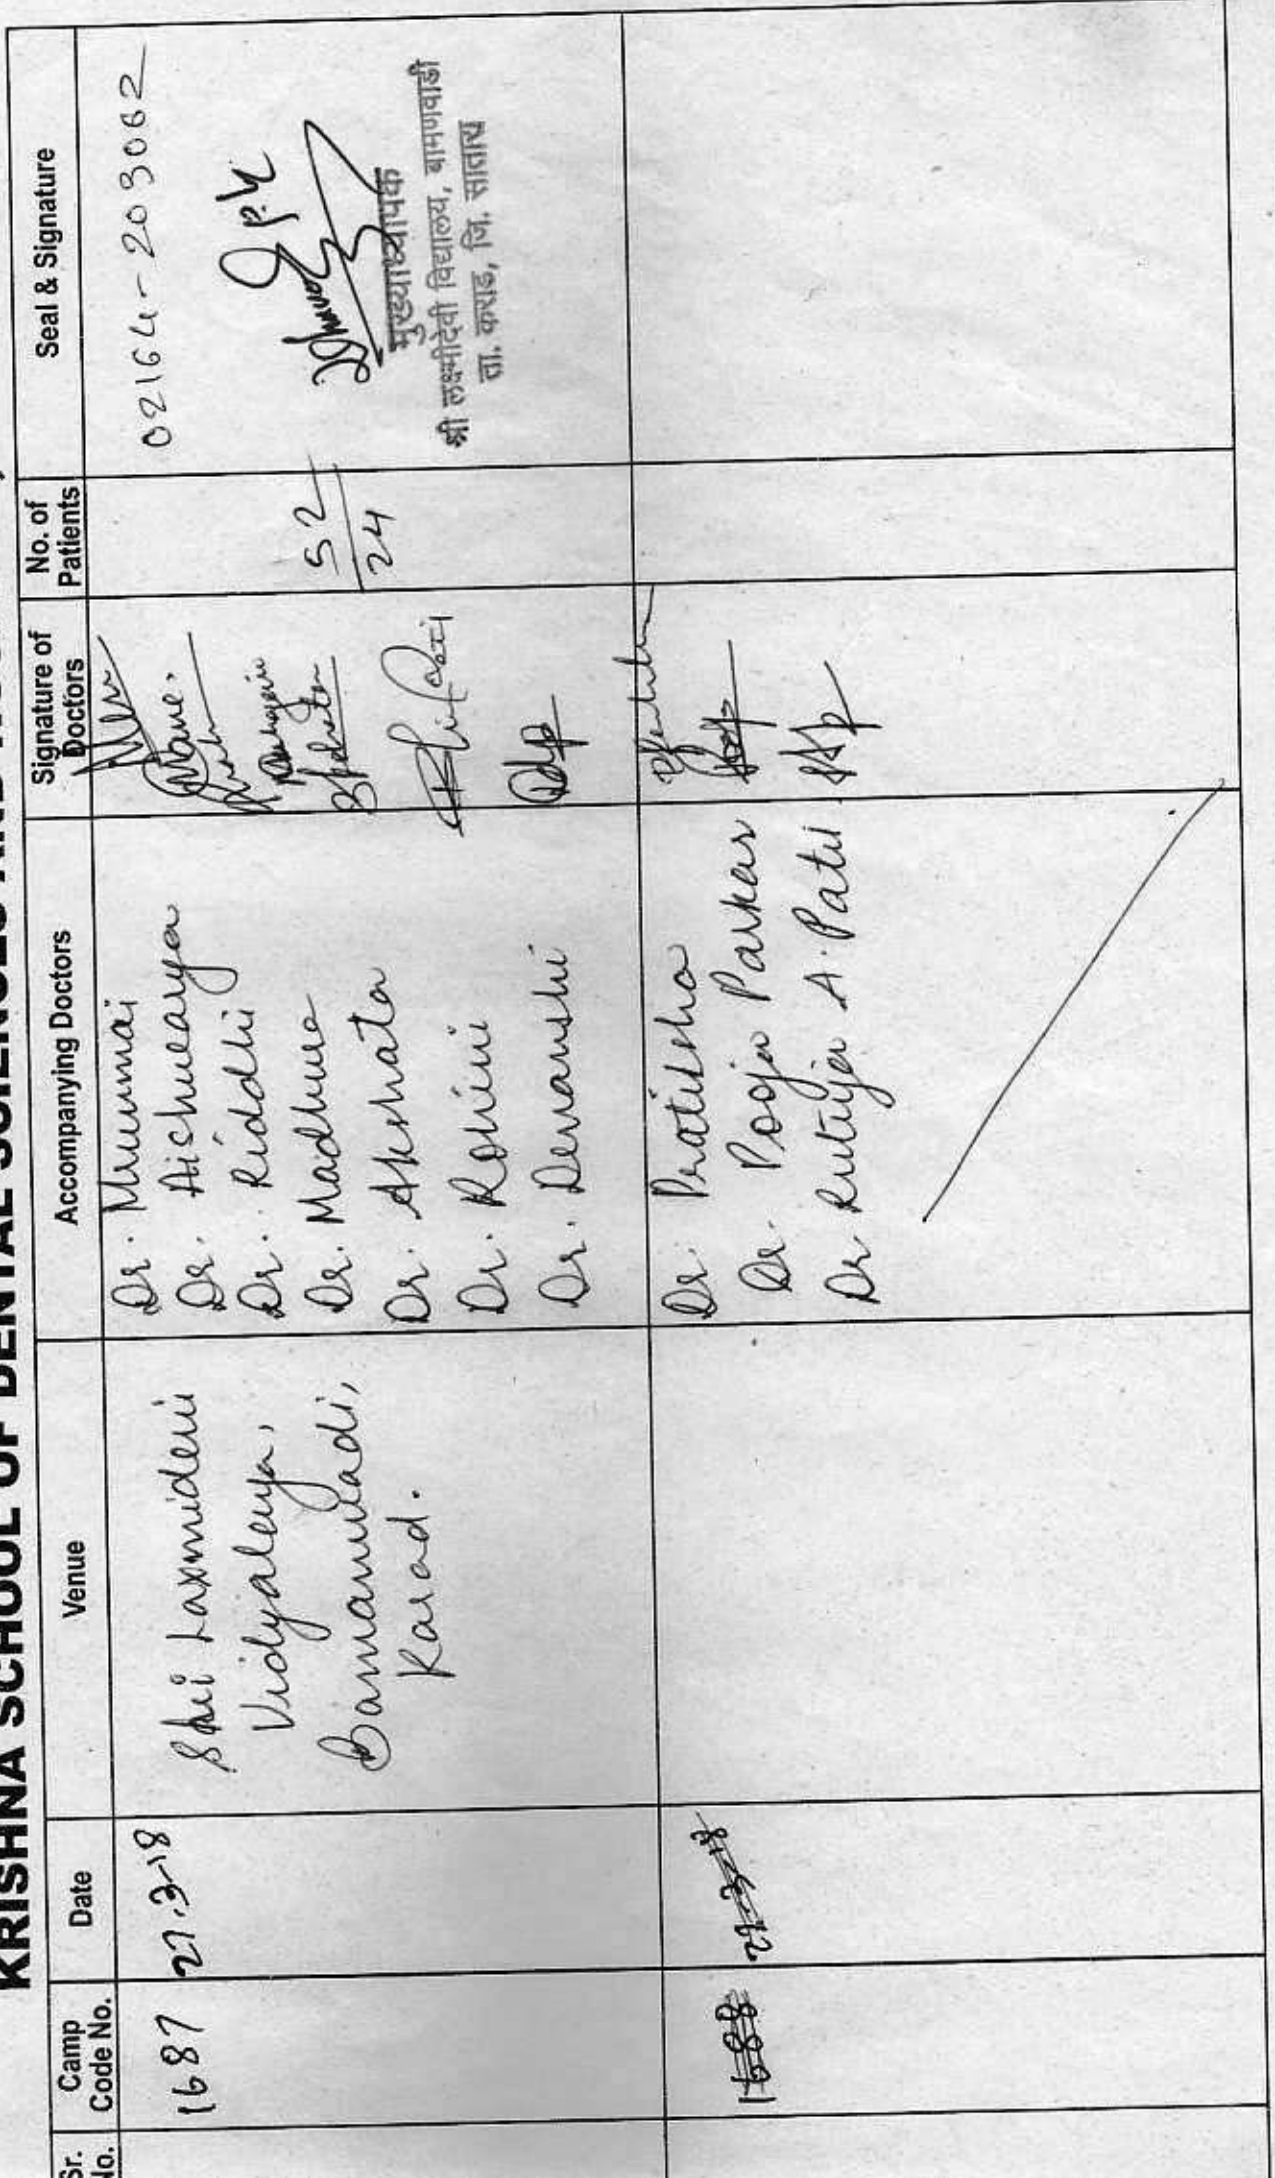 KRISHNA SCHOOL OF DENTAL SCIENCES AND
Sr. No.
Camp Code No.
Date
Venue
Accompanying Doctors
Signature of Doctors
No. of Patients
Seal & Signature
1687
27-3-18
Shri Laxmidevi
Vidyalaya,
Bamanwadi,
Karad.
Dr. Mrunmai
Dr. Aishwarya
Dr. Riddhi
Dr. Madhura
Dr. Akshata
Dr. Rohini
Dr. Devanshi
52
24
02164-203062
मुख्याध्यापक
श्री लक्ष्मीदेवी विद्यालय, बामणवाडी
ता. कराड, जि. सातारा
1688
Dr. Pratiksha
Dr. Pooja Parkar
Dr. Rutuja A. Patil